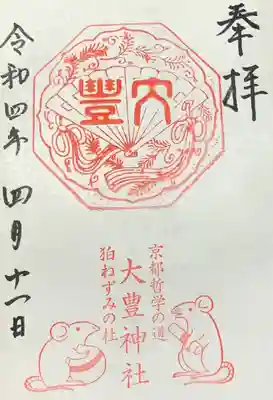 奉拝
大豐
京都哲学の道
大豊神社
狛ねずみの社
令和四年 四月十一日